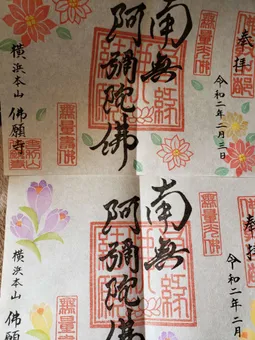 奉拝
令和二年二月三日
無量光佛
南無
阿彌陀佛
無量壽佛
横浜本山 佛願寺
奉拝
令和二年二月
無量光佛
南無
阿彌陀佛
無量壽
横浜本山 佛願